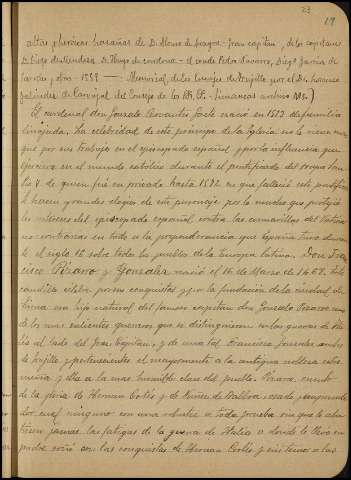 23
19
altas y heroicas hazañas de D. Alonso de Aragon - Gran capitan, de los capitanes
D. Diego de Mendoza D. Hugo de cardona - el conde Pedro Navarro, Diego Garcia de
Paredes, y otros - 1559 — Memorial, de los Linajes de Trujillo por el Dr. Lorenzo
Galindez de Carvajal del Consejo de los RR. CC.
El cardenal don Gonzalo Cervantes Gaete nació en 1513 de familia
linajuda, ha celebridad de este príncipe de la Iglesia no le viene mas
que por sus trabajos en el episcopado español, y por la influencia que
ejerciera en el mundo católico durante el pontificado del
de quien fué su privado hasta 1572 en que falleció este pontifice
hacen grandes elogios de este personaje por lo mucho que protegió
los intereses del episcopado español contra las camarillas del Vaticano
en todo a la preponderancia que España tuvo durante
el siglo 16 sobre todos los pueblos de la Europa latina. Don Fran
cisco Pizarro y Gonzalez nació el 16 de Marzo de 1468. Este
caudillo célebre por sus conquistas y por la fundacion de la ciudad de
Lima era hijo natural del famoso capitan don Gonzalo Pizarro uno
de los mas valientes guerreros que se distinguieron en las guerras de Ita
lia al lado del Gran Capitan, y de una tal Francisca Gonzalez ambos
de Trujillo y perteneciente el mayormente a la antigua nobleza estre
meña y ella a la mas humilde clase del pueblo. Pizarro, émulo
de la gloria de Hernan Cortés y de Nuñez de Balboa, osado y emprende
dor cual ninguno con una robustez a toda prueba sin que le aba
tiesen jamas las fatigas de la guerra de Italia a donde le llevó su
padre soñó con las conquistas de Hernan Cortés y